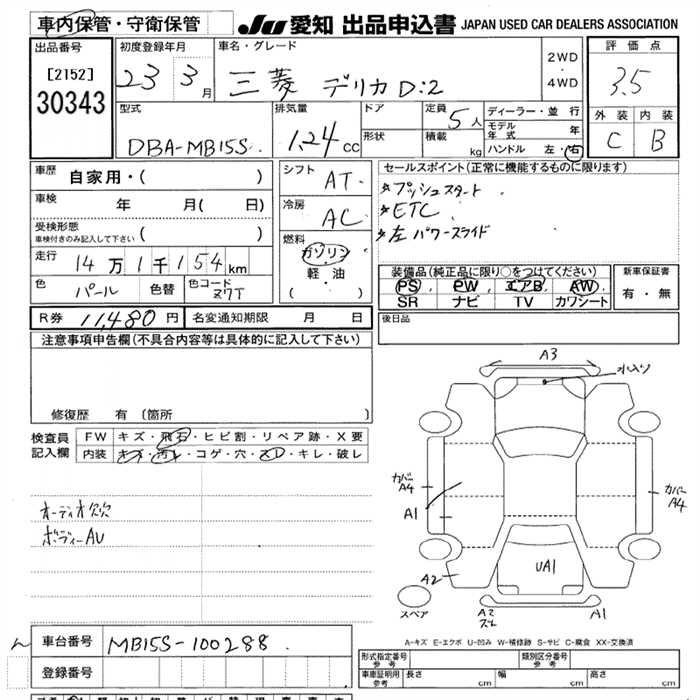 車内保管・守衛保管
JU 愛知 出品申込書 JAPAN USED CAR DEALERS ASSOCIATION
出品番号
[2152]
30343
初度登録年月
23 3月
車名・グレード
三菱 デリカD:2
2WD
・
4WD
評価点
3.5
外装 内装
C B
型式
DBA-MB15S
排気量
1.24 cc
ドア
形状
定員 5人
積載 kg
ディーラー・並行
モデル年式 年
ハンドル 左・右
車歴 自家用・( )
車検 年 月( 日)
受検形態
車検付きのみ記入して下さい ( )
走行 14万1千154km
色 パール 色替 色コード Z7T
シフト AT
冷房 AC
燃料
ガソリン
・
軽・油
( )
セールスポイント(正常に機能するものに限ります)
☆プッシュスタート
☆ETC
☆左パワースライド
装備品(純正品に限り○をつけてください)
PS PW エアB AW
SR ナビ TV カワシート
新車保証書
有・無
R券 11,480円 名変通知期限 月 日
後日品
注意事項申告欄(不具合内容等は具体的に記入して下さい)
修復歴 有〔箇所 〕
検査員
記入欄
FW キズ・飛石・ヒビ割・リペア跡・X要
内装 キズ・汚レ・コゲ・穴・スレ・キレ・破レ
オーディオ欠
ボディーAU
A3
水入り
カバー
A4
A1
カバー
A4
A2
UA1
スペア
A2
スレ
A1
A-キズ E-エクボ U-凹み W-補修跡 S-サビ C-腐食 XX-交換済
車台番号 MB15S-100288
登録番号
形式指定番号
参考
類別区分番号
参考
車庫証明用
参考
長さ cm 幅 cm 高さ cm